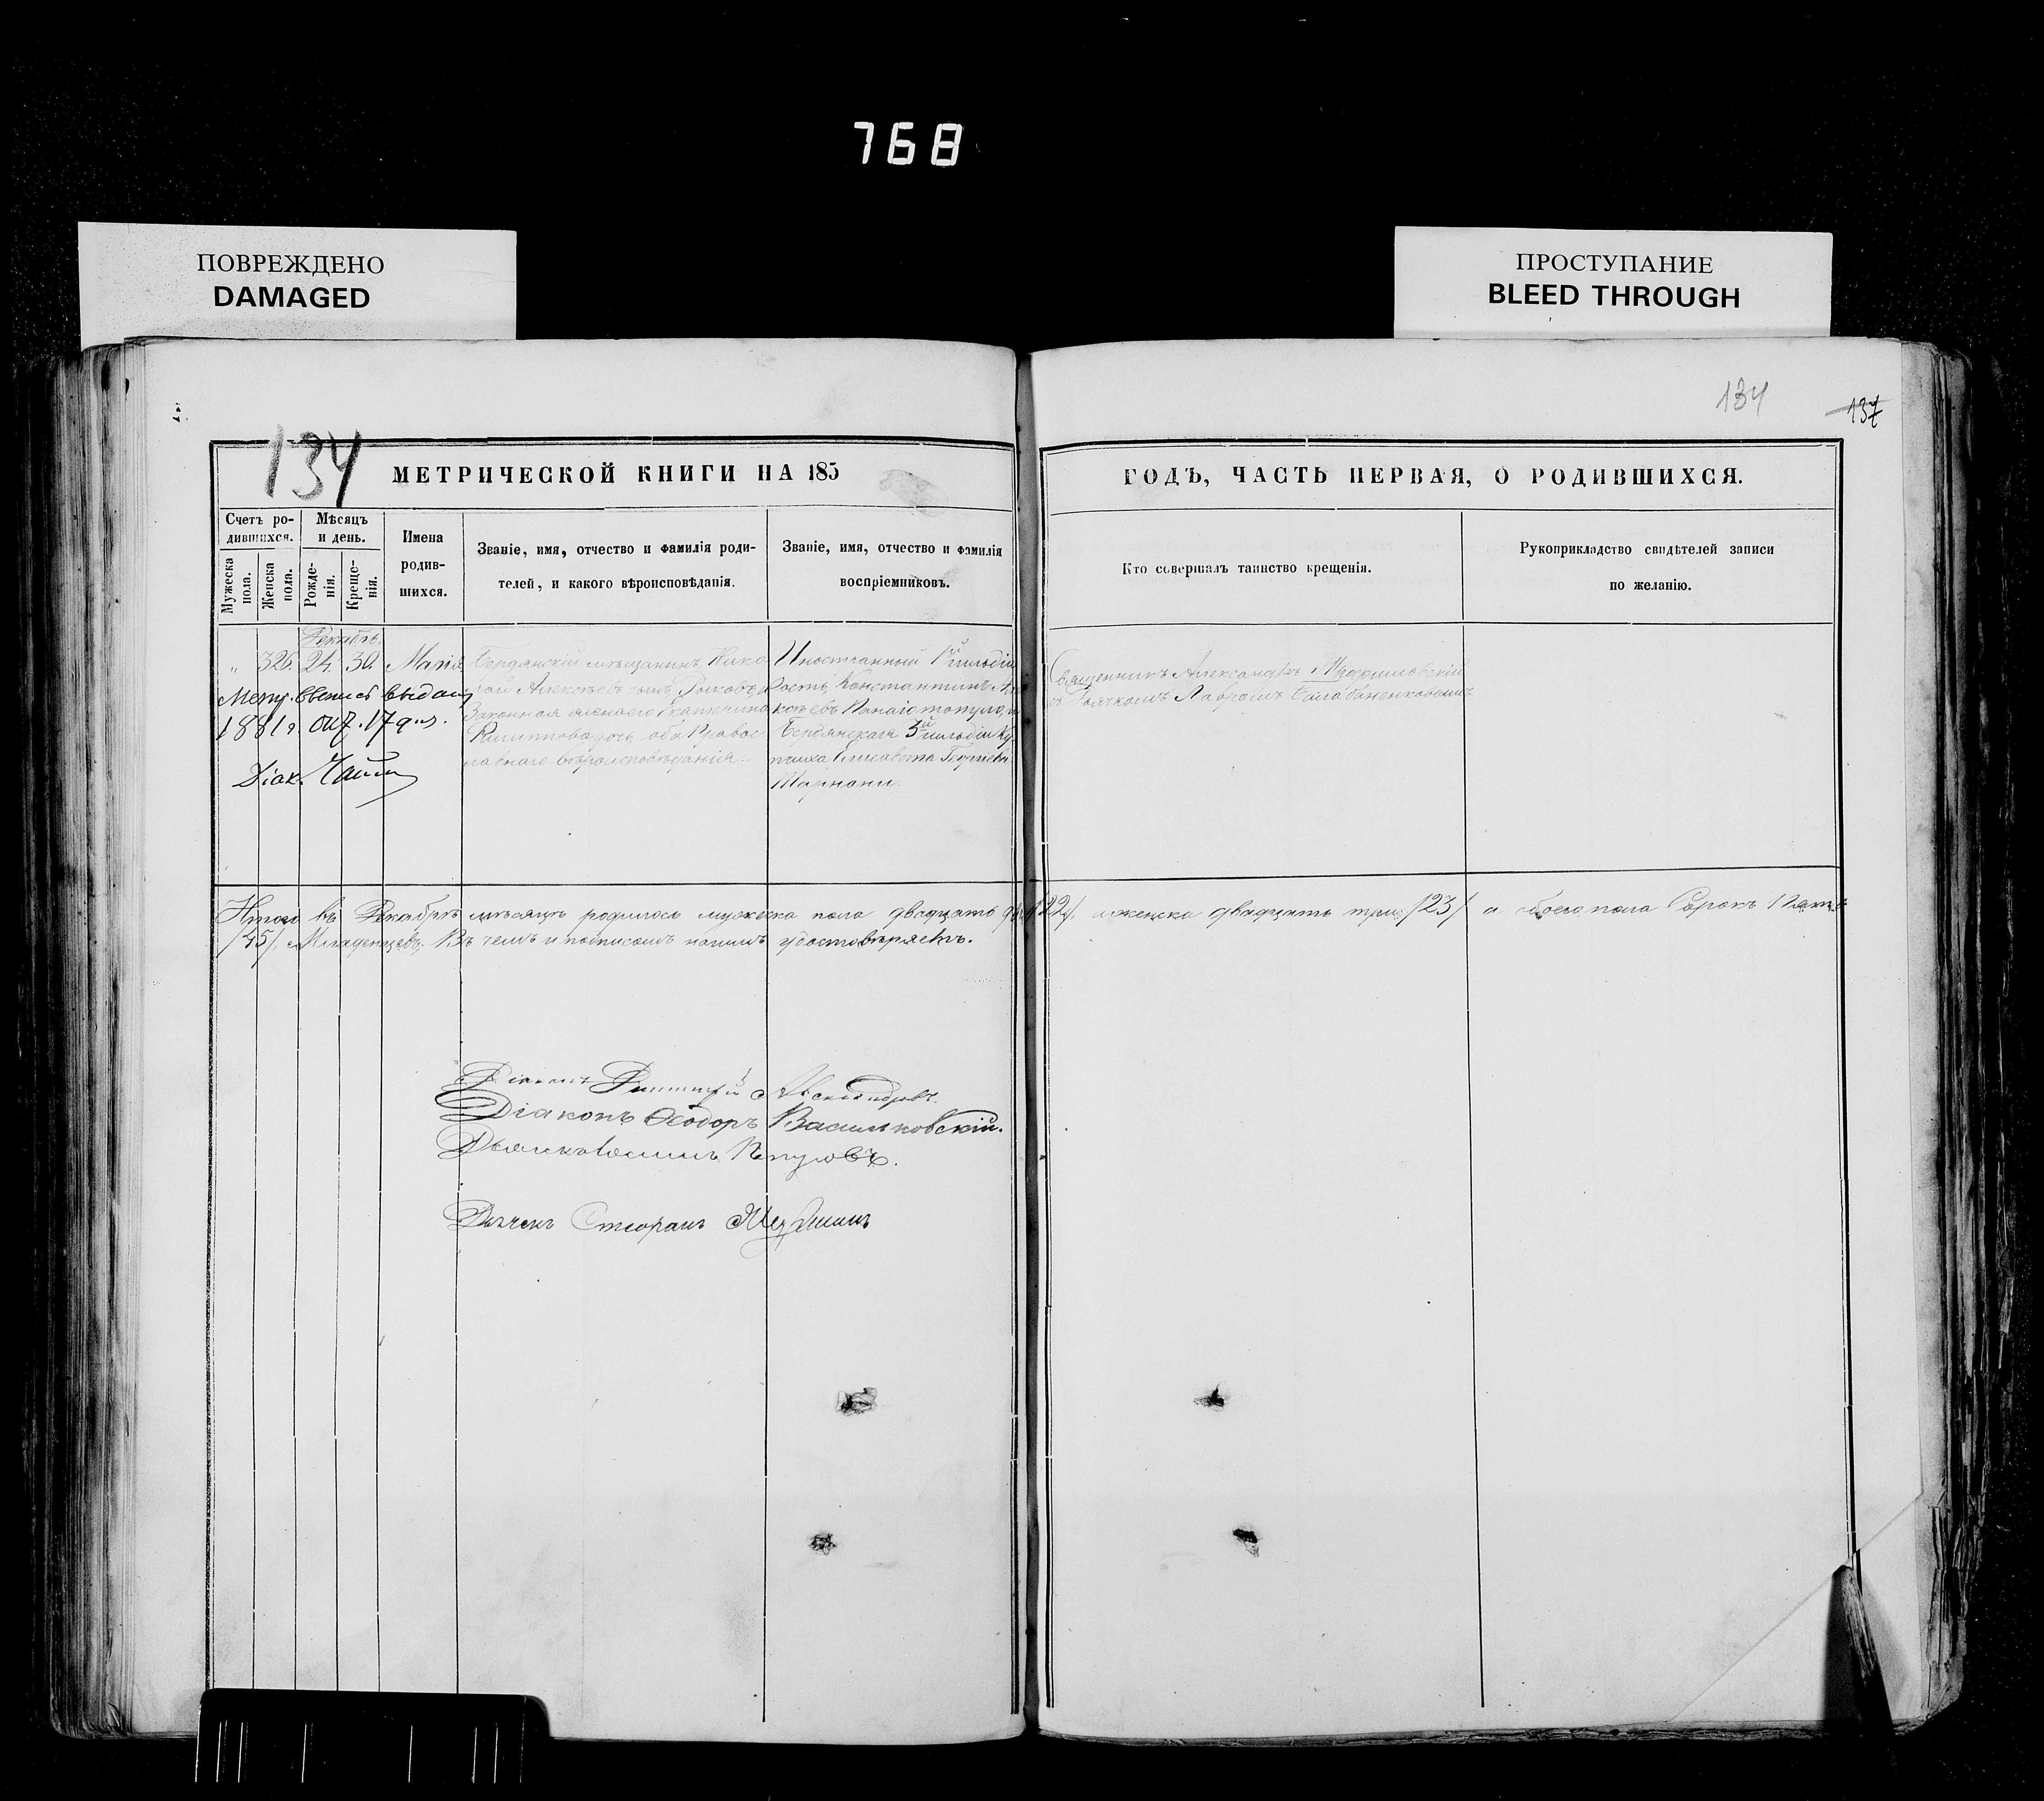 768
ПОВРЕЖДЕНО
DAMAGED
ПРОСТУПАНИЕ
BLEED THROUGH
134
137
134
МЕТРИЧЕСКОЙ КНИГИ НА 185
ГОДЪ, ЧАСТЬ ПЕРВАЯ, О РОДИВШИХСЯ.
Счетъ ро-
дившихся.
Мужеска
пола.
Женска
пола.
Мѣсяцъ
и день.
Рожде-
нія.
Креще-
нія.
Имена
родив-
шихся.
Званіе, имя, отчество и фамилія роди-
телей, и какого вѣроисповѣданія.
Званіе, имя, отчество и фамилія
воспріемниковъ.
Кто совершалъ таинство крещенія.
Рукоприкладство свидѣтелей записи
по желанію.
Декабрь
„ 326. 24. 30. Марія
Метр. выпись выдан
1881 г. Окт. 17 дня.
Діак.
Бердянскій мѣщанинъ Нико
лай Алексѣевъ сынъ
Законная жена его Екатерина
оба Правос
лавнаго вѣроисповѣданія.
Иностранный 1й гильдіи
гость Константинъ
Панаіотопуло, и
Бердянская 3й гильдіи Ку
пчиха Елисавета
Священникъ Александръ
съ Дьячкомъ Лавромъ
Итого въ Декабрѣ мѣсяцѣ родилось мужеска пола двадцать два /22/, женска двадцать три /23/ а обоего пола Сорокъ Пять
/45/ Младенцевъ. Въ чемъ и подписомъ нашимъ удостовѣряемъ.
Діаконъ Димитрій Александровъ.
Діаконъ Ѳеодоръ Васильковскій.
Дьячекъ Стефанъ